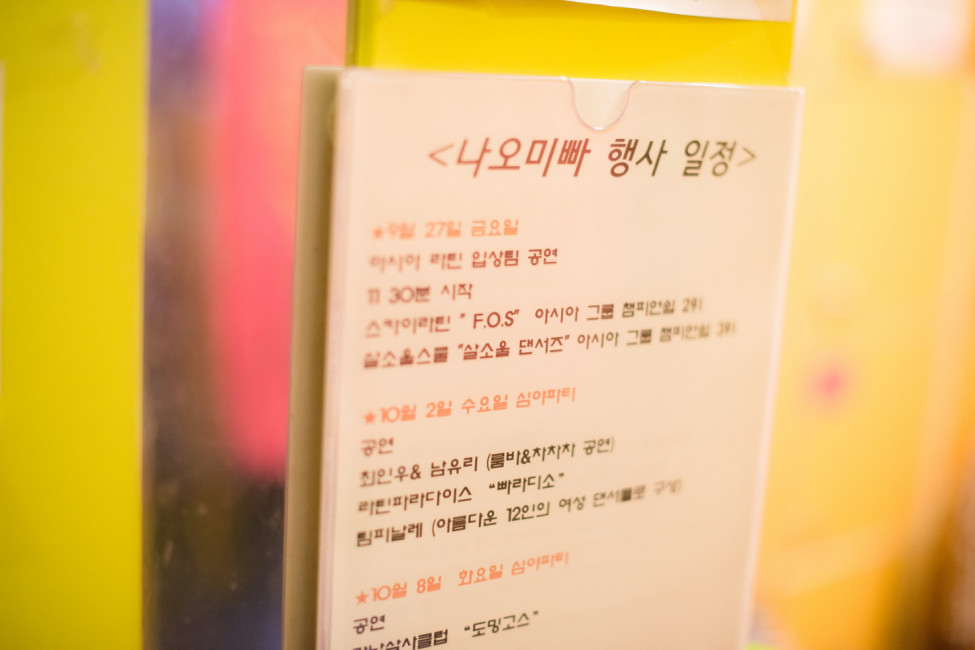 <나오미빠 행사 일정>
★9월 27일 금요일
아시아 라틴 입상팀 공연
11 30분 시작
스카이라틴 " F.O.S" 아시아 그룹 챔피언쉽 2위
살소울스쿨 "살소울 댄서즈" 아시아 그룹 챔피언쉽 3위
★10월 2일 수요일 심야파티
공연
최인우& 남유리 (룸바&차차차 공연)
라틴파라다이스 "빠라디소"
팀피날레 (아름다운 12인의 여성 댄서들로 구성)
★10월 8일 화요일 심야파티
공연
"도밍고스"